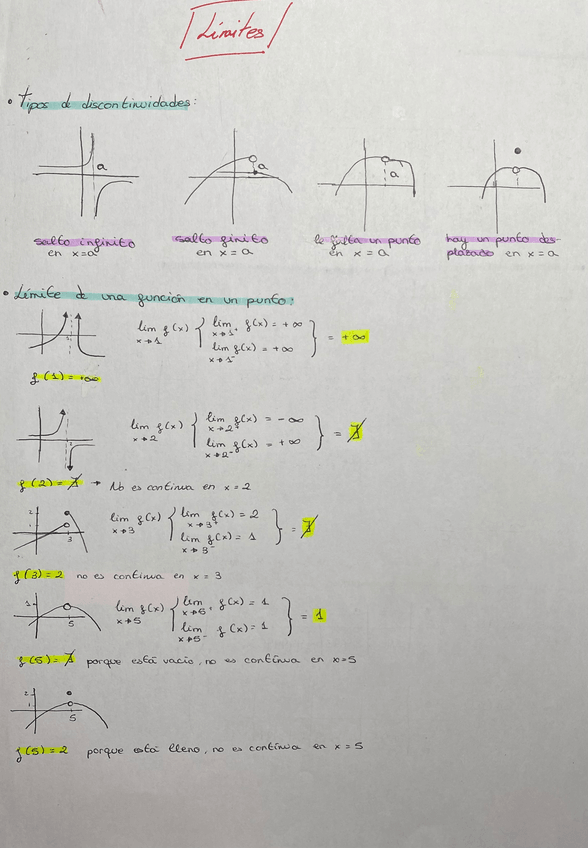 Límites
• Tipos d discontinuidades:
a
a
a
salto infinito
en x=a
salto finito
en x = a
le falta un punto
en x = a
hay un punto des-
plazado en x = a
• Límite de una función en un punto:
1
lim f(x) { lim f(x) = +∞
x→1 x→1⁺
lim f(x) = +∞
x→1⁻
} = +∞
f(1) = +∞
2
lim f(x) { lim f(x) = -∞
x→2 x→2⁺
lim f(x) = +∞
x→2⁻
} = ∄
f(2) = ∄ → No es continua en x = 2
2
1
3
lim f(x) { lim f(x) = 2
x→3 x→3⁺
lim f(x) = 1
x→3⁻
} = ∄
f(3) = 2 no es continua en x = 3
1
5
lim f(x) { lim f(x) = 1
x→5 x→5⁺
lim f(x) = 1
x→5⁻
} = 1
f(5) = ∄ porque está vacío, no es continua en x=5
2
1
5
f(5) = 2 porque está lleno, no es continua en x = 5